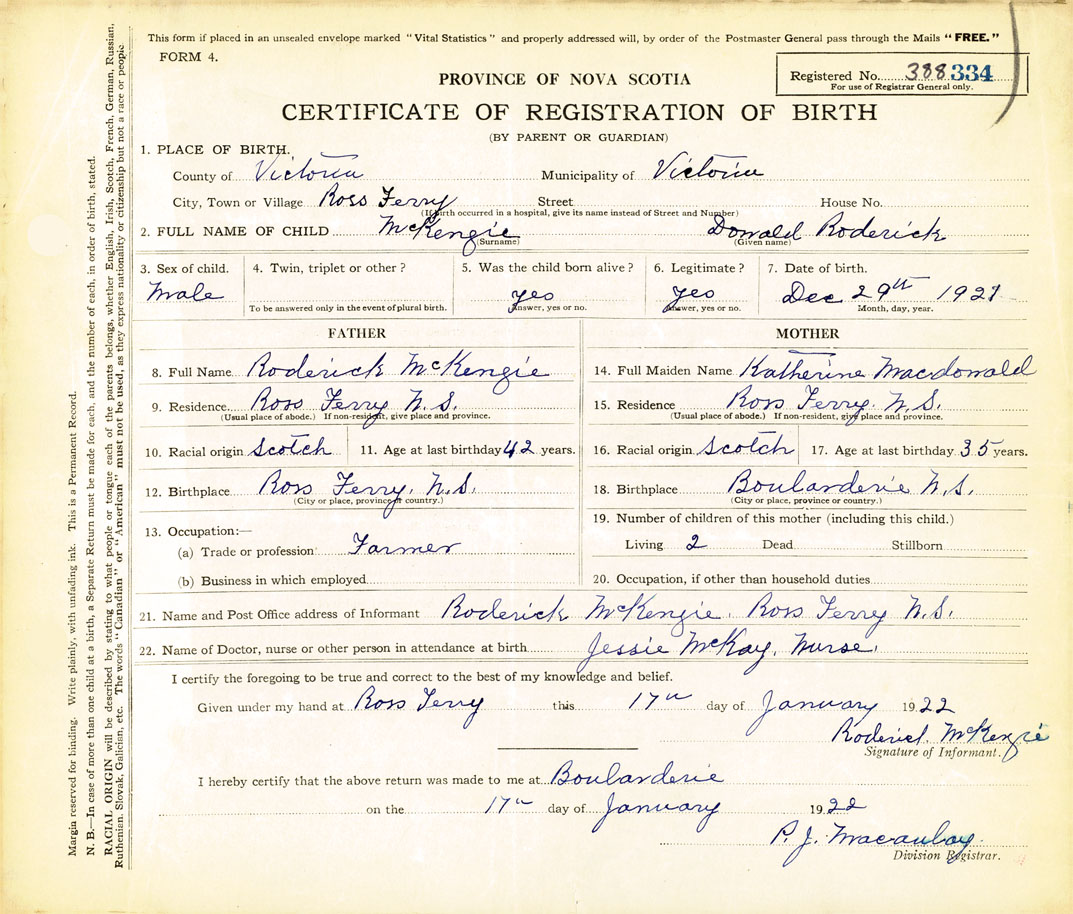 This form if placed in an unsealed envelope marked "Vital Statistics" and properly addressed will, by order of the Postmaster General pass through the Mails "FREE."
FORM 4.
Registered No. 388 334
For use of Registrar General only.
PROVINCE OF NOVA SCOTIA
CERTIFICATE OF REGISTRATION OF BIRTH
(BY PARENT OR GUARDIAN)
1. PLACE OF BIRTH.
County of Victoria Municipality of Victoria
City, Town or Village Ross Ferry Street House No.
(If birth occurred in a hospital, give its name instead of Street and Number)
2. FULL NAME OF CHILD McKenzie Donald Roderick
(Surname) (Given name)
3. Sex of child. 4. Twin, triplet or other? 5. Was the child born alive? 6. Legitimate? 7. Date of birth.
Male yes yes Dec 29th 1921
To be answered only in the event of plural birth. Answer, yes or no. Answer, yes or no. Month, day, year.
FATHER
8. Full Name Roderick McKenzie
9. Residence Ross Ferry N.S.
(Usual place of abode.) If non-resident, give place and province.
10. Racial origin Scotch 11. Age at last birthday 42 years.
12. Birthplace Ross Ferry, N.S.
(City or place, province or country.)
13. Occupation:—
(a) Trade or profession Farmer
(b) Business in which employed
MOTHER
14. Full Maiden Name Katherine Macdonald
15. Residence Ross Ferry. N.S.
(Usual place of abode.) If non-resident, give place and province.
16. Racial origin Scotch 17. Age at last birthday 35 years.
18. Birthplace Boularderie N.S.
(City or place, province or country.)
19. Number of children of this mother (including this child.)
Living 2 Dead Stillborn
20. Occupation, if other than household duties
21. Name and Post Office address of Informant Roderick McKenzie. Ross Ferry N.S.
22. Name of Doctor, nurse or other person in attendance at birth Jessie McKay, Nurse.
I certify the foregoing to be true and correct to the best of my knowledge and belief.
Given under my hand at Ross Ferry this 17th day of January 1922
Roderick McKenzie
Signature of Informant.
I hereby certify that the above return was made to me at Boularderie
on the 17th day of January 1922
P. J. Macaulay
Division Registrar.
Margin reserved for binding. Write plainly, with unfading ink. This is a Permanent Record.
N. B.—In case of more than one child at a birth, a Separate Return must be made for each, and the number of each, in order of birth, stated.
RACIAL ORIGIN will be described by stating to what people or tongue each of the parents belongs, whether English, Irish, Scotch, French, German, Russian,
Ruthenian, Slovak, Galician, etc. The words "Canadian" or "American" must not be used, as they express nationality or citizenship but not a race or people